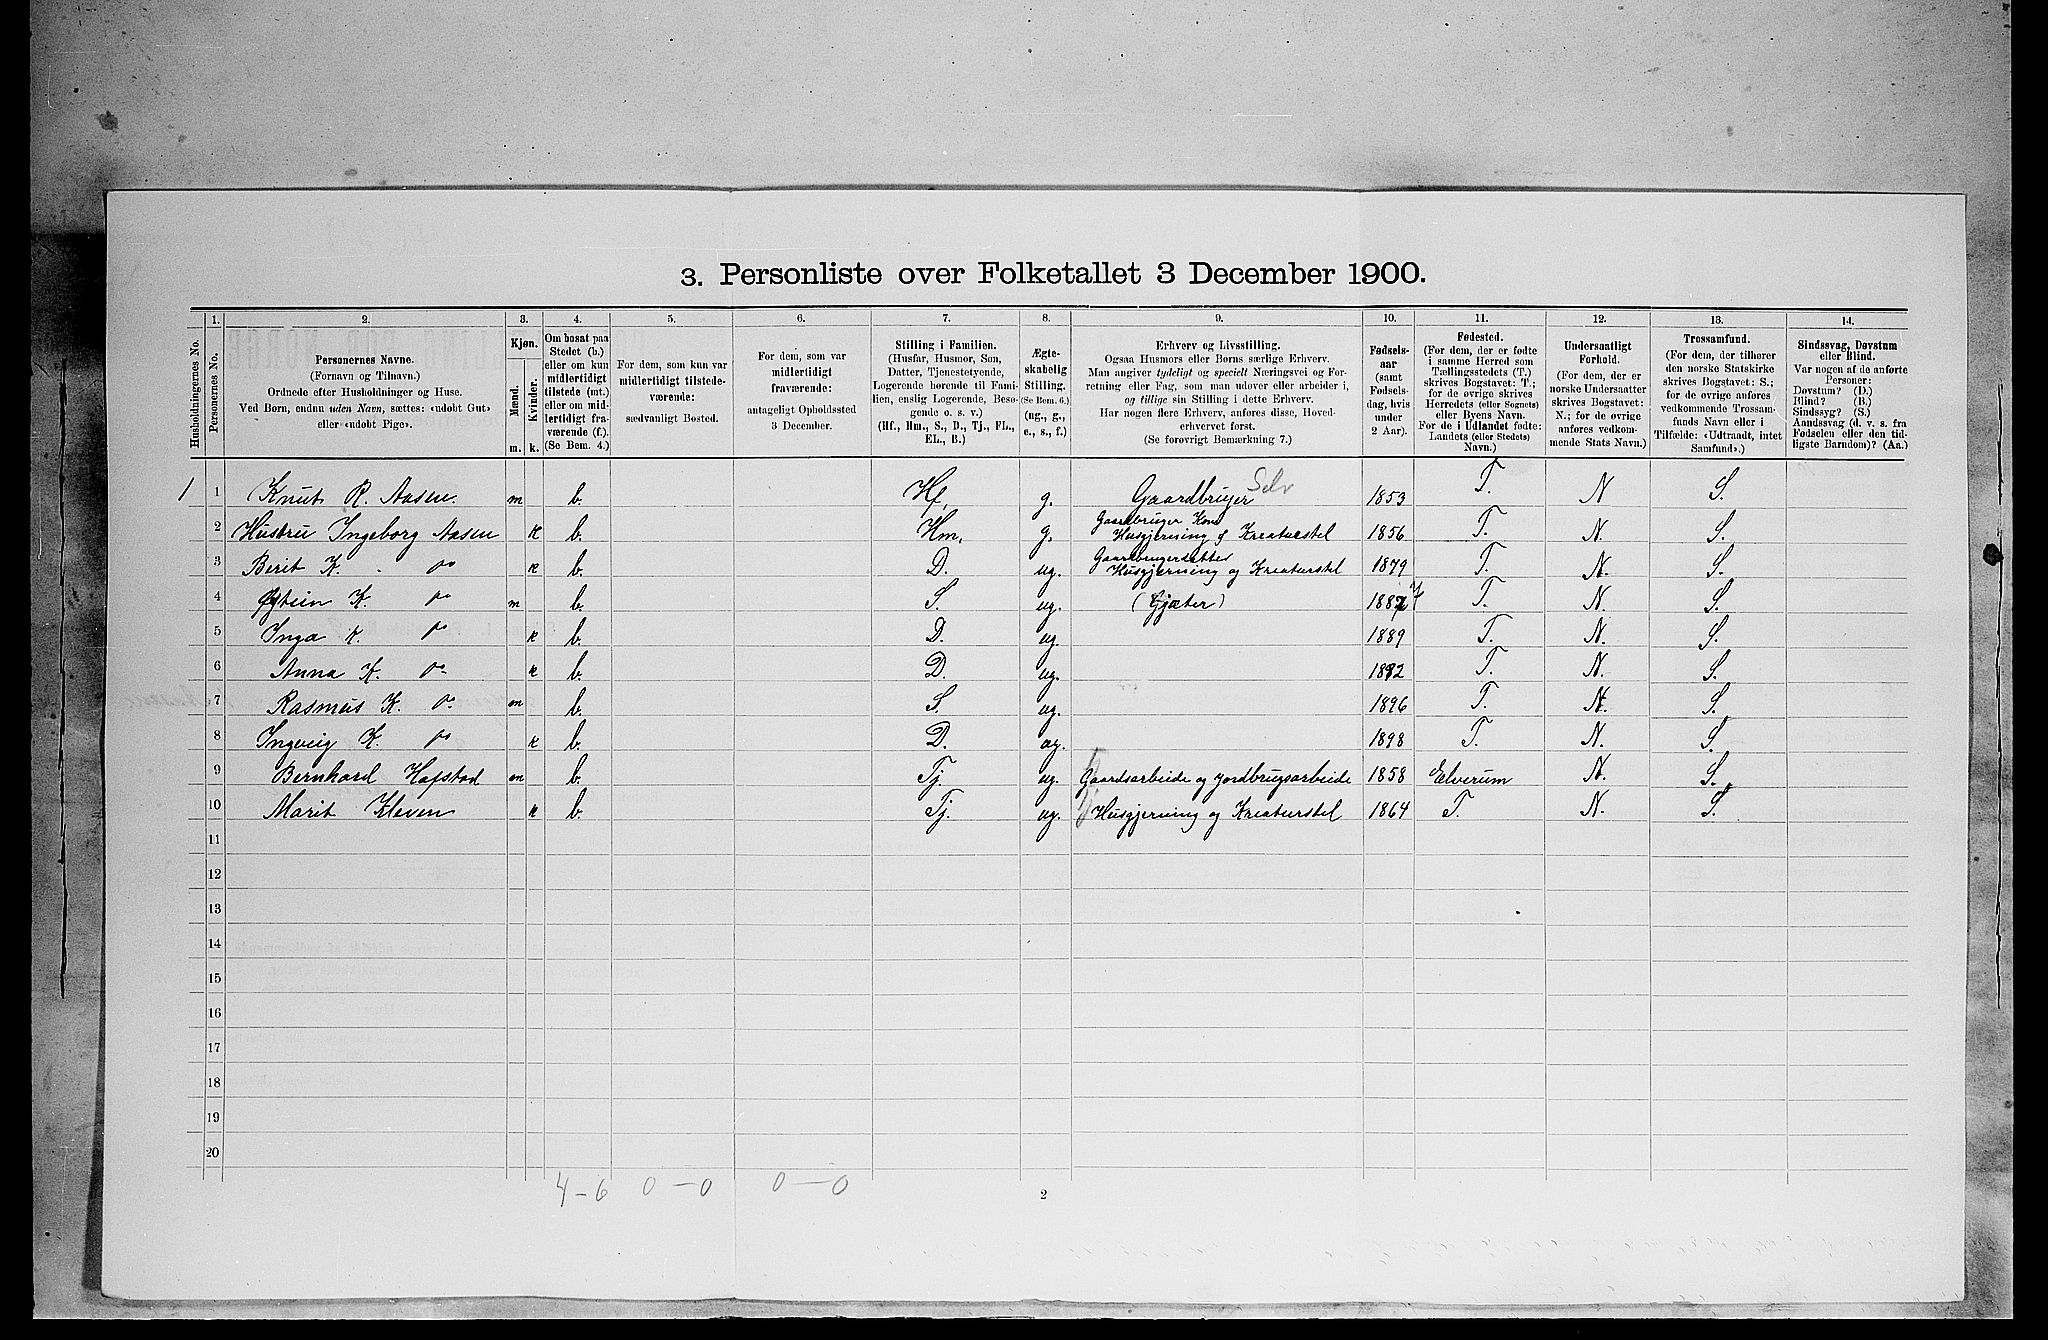 3. Personliste over Folketallet 3 December 1900.
1. 2. 3. 4. 5. 6. 7. 8. 9. 10. 11. 12. 13. 14.
Husholdningernes No.
Personernes No.
Personernes Navne.
(Fornavn og Tilnavn.)
Ordnede efter Husholdninger og Huse.
Ved Børn, endnu uden Navn, sættes: «udøbt Gut»
eller «udøbt Pige».
Kjøn.
Mænd.
Kvinder.
m. k.
Om bosat paa
Stedet (b.)
eller om kun
midlertidigt
tilstede (mt.)
eller om mid-
lertidigt fra-
værende (f.).
(Se Bem. 4.)
For dem, som kun var
midlertidigt tilstede-
værende:
sædvanligt Bosted.
For dem, som var
midlertidigt
fraværende:
antageligt Opholdssted
3 December.
Stilling i Familien.
(Husfar, Husmor, Søn,
Datter, Tjenestetyende,
Logerende hørende til Fami-
lien, enslig Logerende, Besø-
gende o. s. v.)
(Hf., Hm., S., D., Tj., FL.,
EL., B.)
Ægte-
skabelig
Stilling.
(Se Bem. 6.)
(ug., g.,
e., s., f.)
Erhverv og Livsstilling.
Ogsaa Husmors eller Børns særlige Erhverv.
Man angiver tydeligt og specielt Næringsvei og For-
retning eller Fag, som man udøver eller arbeider i,
og tillige sin Stilling i dette Erhverv.
Har nogen flere Erhverv, anføres disse, Hoved-
erhvervet først.
(Se forøvrigt Bemærkning 7.)
Fødsels-
aar
(samt
Fødsels-
dag, hvis
under
2 Aar).
Fødested.
(For dem, der er fødte
i samme Herred som
Tællingsstedets (T.)
skrives Bogstavet: T.;
for de øvrige skrives
Herredets (eller Sognets)
eller Byens Navn.
For de i Udlandet fødte:
Landets (eller Stedets)
Navn.)
Undersaatligt
Forhold.
(For dem, der er
norske Undersaatter
skrives Bogstavet:
N.; for de øvrige
anføres vedkom-
mende Stats Navn.)
Trossamfund.
(For dem, der tilhører
den norske Statskirke
skrives Bogstavet: S.;
for de øvrige anføres
vedkommende Trossam-
funds Navn eller i
Tilfælde: «Udtraadt, intet
Samfund».)
Sindssvag, Døvstum
eller Blind.
Var nogen af de anførte
Personer:
Døvstum? (D.)
Blind? (B.)
Sindssyg? (S.)
Aandssvag (d. v. s. fra
Fødselen eller den tid-
ligste Barndom)? (Aa.)
1 1 Knut R. Aasen. m b. Hf. g. Gaardbruger Selv 1853 T. N S.
2 Hustru Ingeborg Aasen k b. Hm. g. Gaardbruger Kone Husgjerning & Kreaturstel 1856 T. N. S.
3 Berit K. do k b. D. ug. Gaardbrugerdatter Husgjerning og Kreaturstel 1879 T. N. S.
4 Øystein K. do m b. S. ug. (Gjæter) 1887 T. N. S.
5 Inga K. do k b. D. ug. 1889 T. N. S.
6 Anna K. do k b. D. ug. 1892 T. N. S.
7 Rasmus K. do m b. S. ug. 1896 T. N. S.
8 Ingveig K. do k b. D. ug. 1898 T. N. S.
9 Bernhard Hafstad m b. Tj. ug. Gaardsarbeide og Jordbrugsarbeide 1858 Elverum N. S.
10 Marit Kleven k b. Tj. ug. Husgjerning og Kreaturstel 1864 T. N. S.
11
12
13
14
15
16
17
18
19
20
4 - 6 0 - 0 0 - 0
2